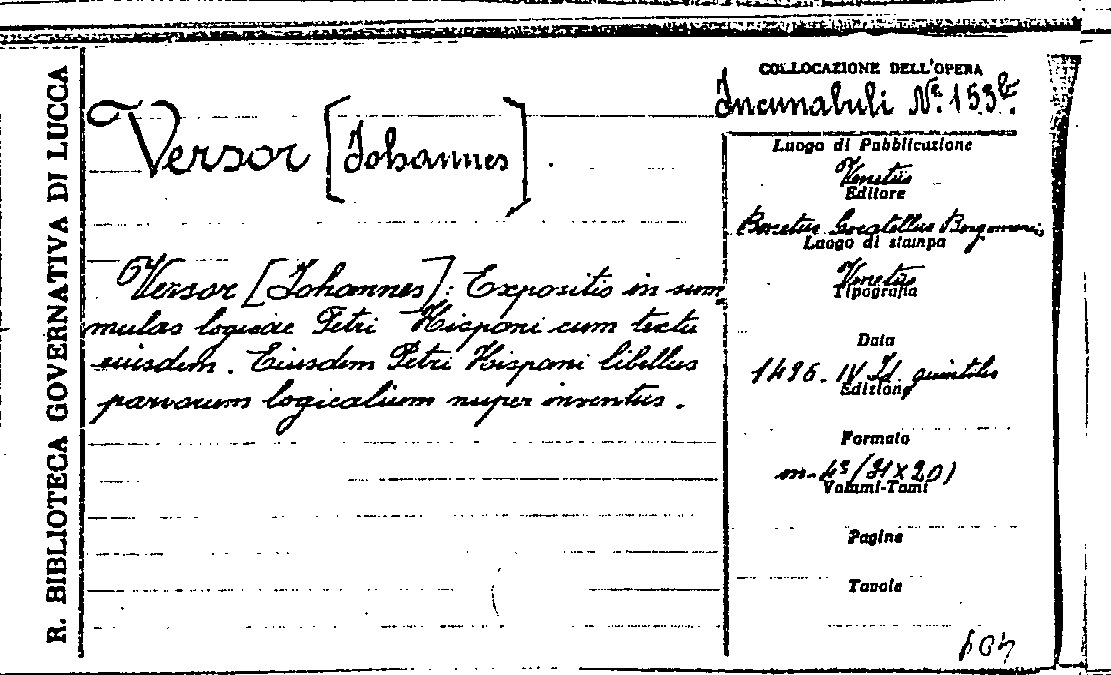 R. BIBLIOTECA GOVERNATIVA DI LUCCA
Versor [Johannes].
Versor [Johannes]: Expositio in sum
mulas logicae Petri Hispani cum textu
eiusdem. Eiusdem Petri Hispani libellus
parvorum logicalium nuper inventus.
COLLOCAZIONE DELL'OPERA
Incunabuli Nº. 153
Luogo di Pubblicazione
Venetiis
Editore
Bonetus Locatellus
Luogo di stampa
Venetiis
Tipografia
Data
1496. IV Id. quintilis
Edizione
Formato
in-4º (31 x 20)
Volumi-Tomi
Pagine
Tavole